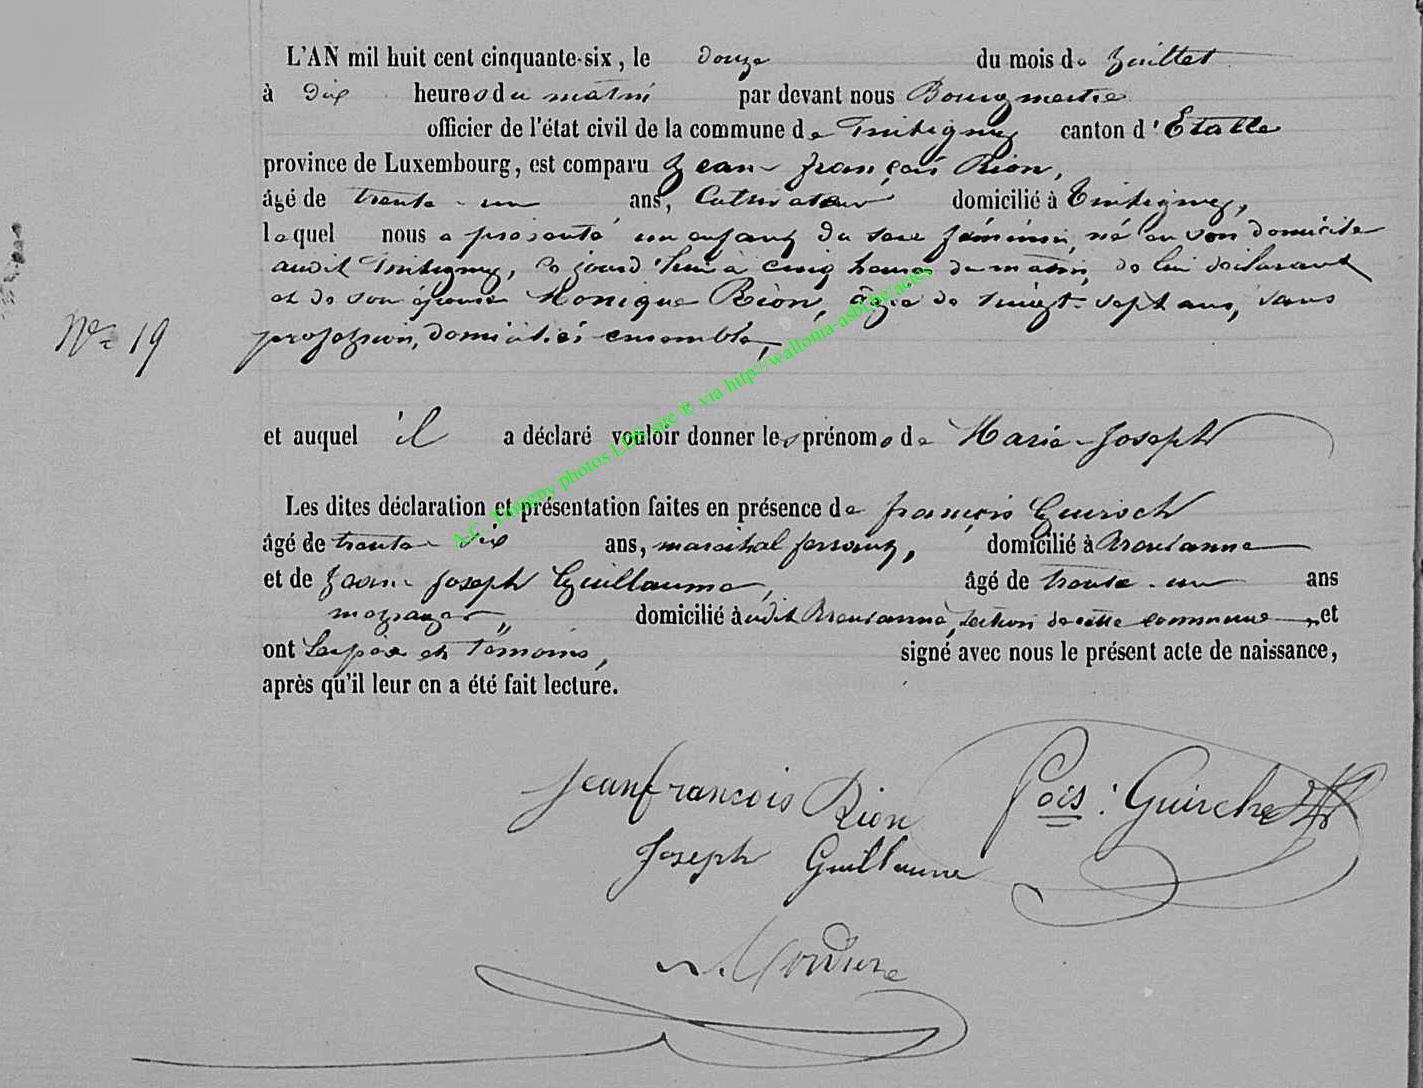 L'AN mil huit cent cinquante-six, le douze du mois de Juillet
à dix heures du matin par devant nous Bourgmestre
officier de l'état civil de la commune de Tintigny canton d'Etalle
province de Luxembourg, est comparu Jean François Rion,
âgé de trente-un ans, Cultivateur domicilié à Tintigny,
lequel nous a présenté un enfant du sexe féminin, né en son domicile
audit Tintigny, ce jourd'hui à cinq heures du matin, de lui déclarant
et de son épouse Monique Rion, âgée de vingt-sept ans, sans
N° 19 profession, domiciliés ensemble,
et auquel il a déclaré vouloir donner les prénoms de Marie-Joseph
Les dites déclaration et présentation faites en présence de françois Guirsch
âgé de trente six ans, maréchal ferrant, domicilié à Breuvanne
et de Jean-Joseph Guillaume, âgé de trente-un ans
domicilié àudit Breuvanne, section de cette commune, et
ont Les père et témoins, signé avec nous le présent acte de naissance,
après qu'il leur en a été fait lecture.
Jean francois Rion fcois : Guirche
Joseph Guillaume
A.C. Tintigny photos LDS site ® via http://wallonia-asbl.be/actes